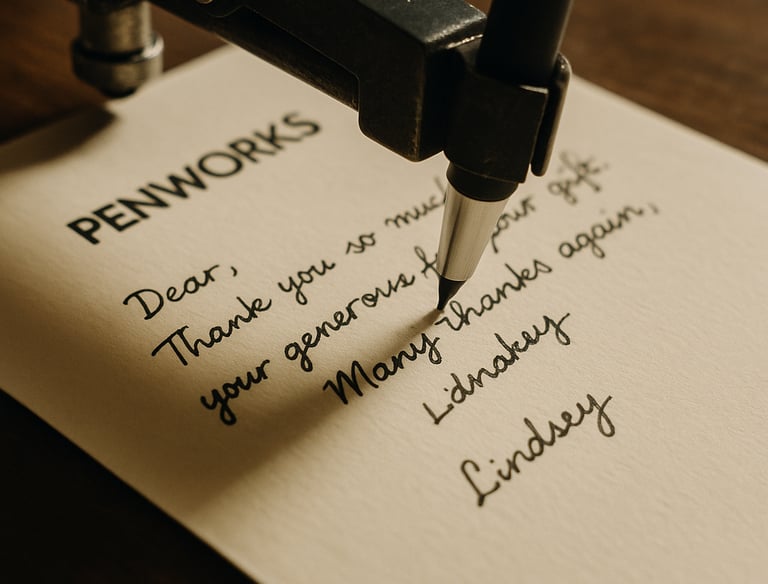 PENWORKS
Dear,
Thank you so much
your generous your gift.
Many thanks again,
Lidnakey
Lindsey